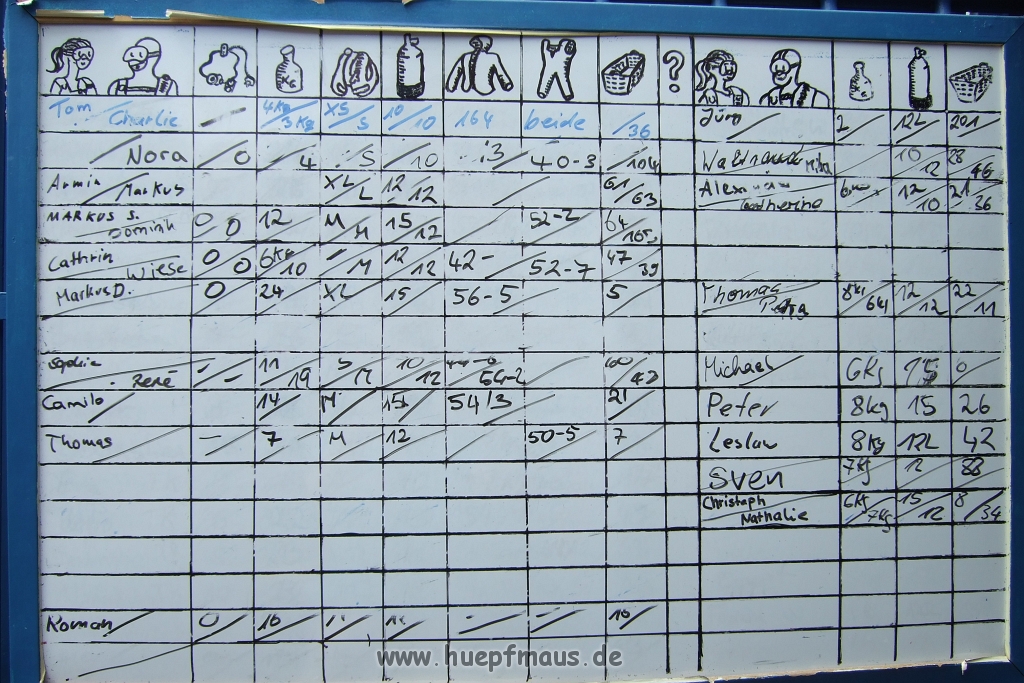 KG KG
Tom Charlie 4Kg 3Kg XS S 10 10 164 beide 36 Jürg 2 12L 201
Nora 0 4 S 10 :3 40-3 104 10 12 28 46
Armin Markus XL L 12 12 61 63 12 10 21 26
MARKUS S. Dominik 0 0 12 M M 15 12 52-2 64
Cathrin Wiese 0 0 6Kg 10 M 12 12 42- 52-7 47 39
Markus D. 0 24 XL 15 56-5 5 Thomas 8kg 6kg 12 12 22 11
Sophie René - - 11 19 S M 10 12 54-2 Michael 6Kg 15 0
Camilo 14 M 15 54/3 21 Peter 8kg 15 26
Thomas - 7 M 12 50-5 7 Leslaw 8Kg 12L 42
Sven 7Kg 12 88
Christoph Nathalie 6Kg 7Kg 15 12 8 34
Roman 0 16 - - 10
www.huepfmaus.de